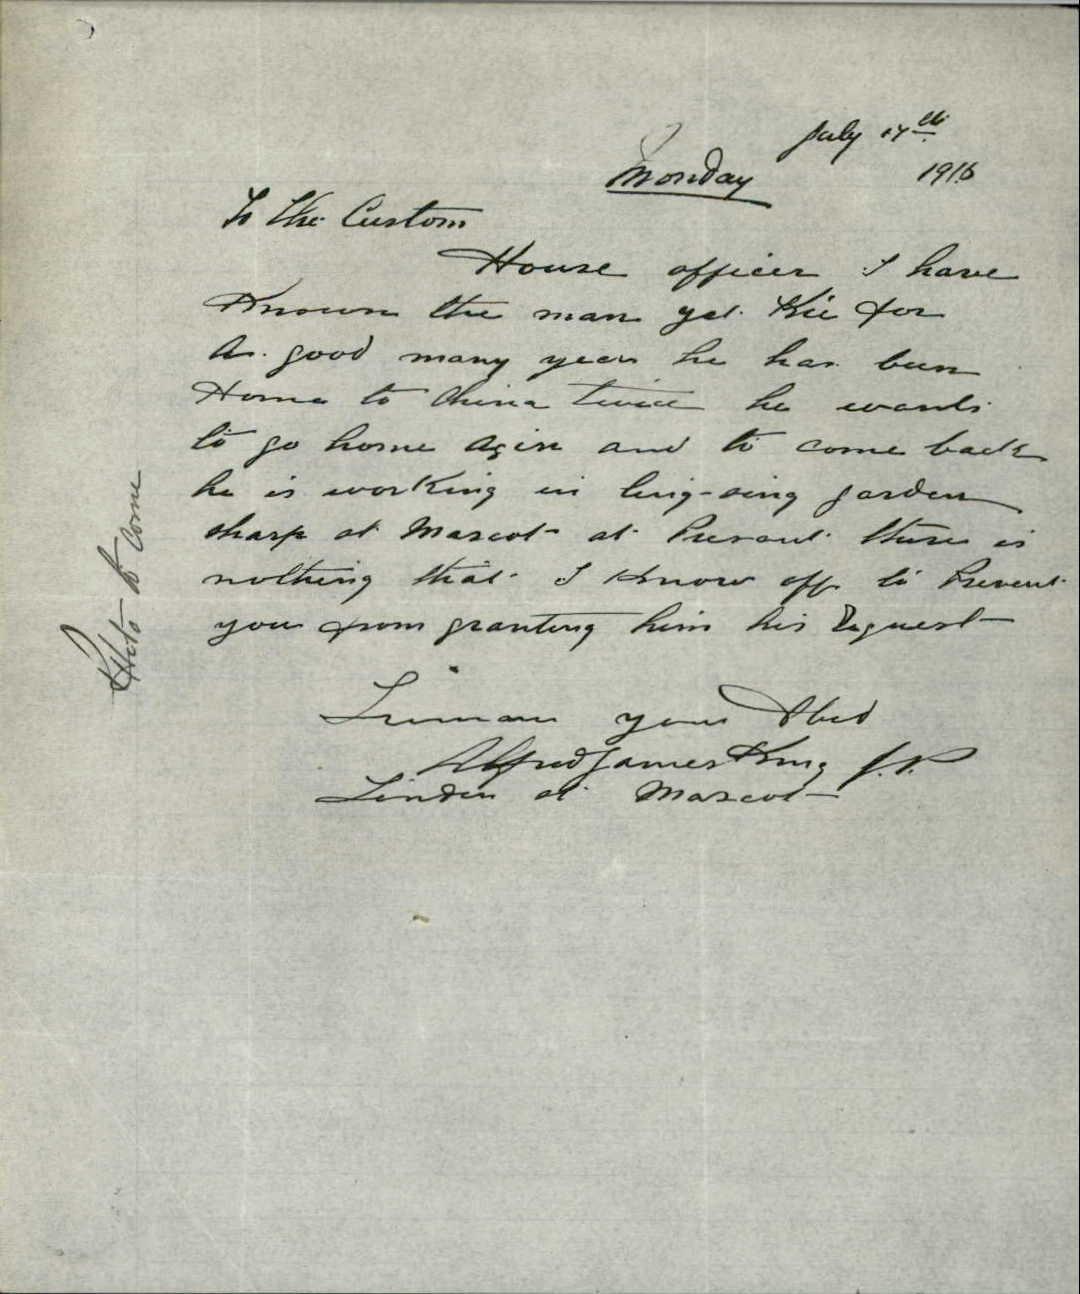 July 17th
Monday 1916
To the Custom
House officer I have
Known the man yet Kie for
A good many year he has been
Home to China twice he wants
to go home Agin and to come back
he is working in garden
sharp at Mascot at Presant there is
nothing that I Know off to Prevent
you from granting him his Request
your Obed
Alfred James King J.P.
Linden st Mascot
Photo to come